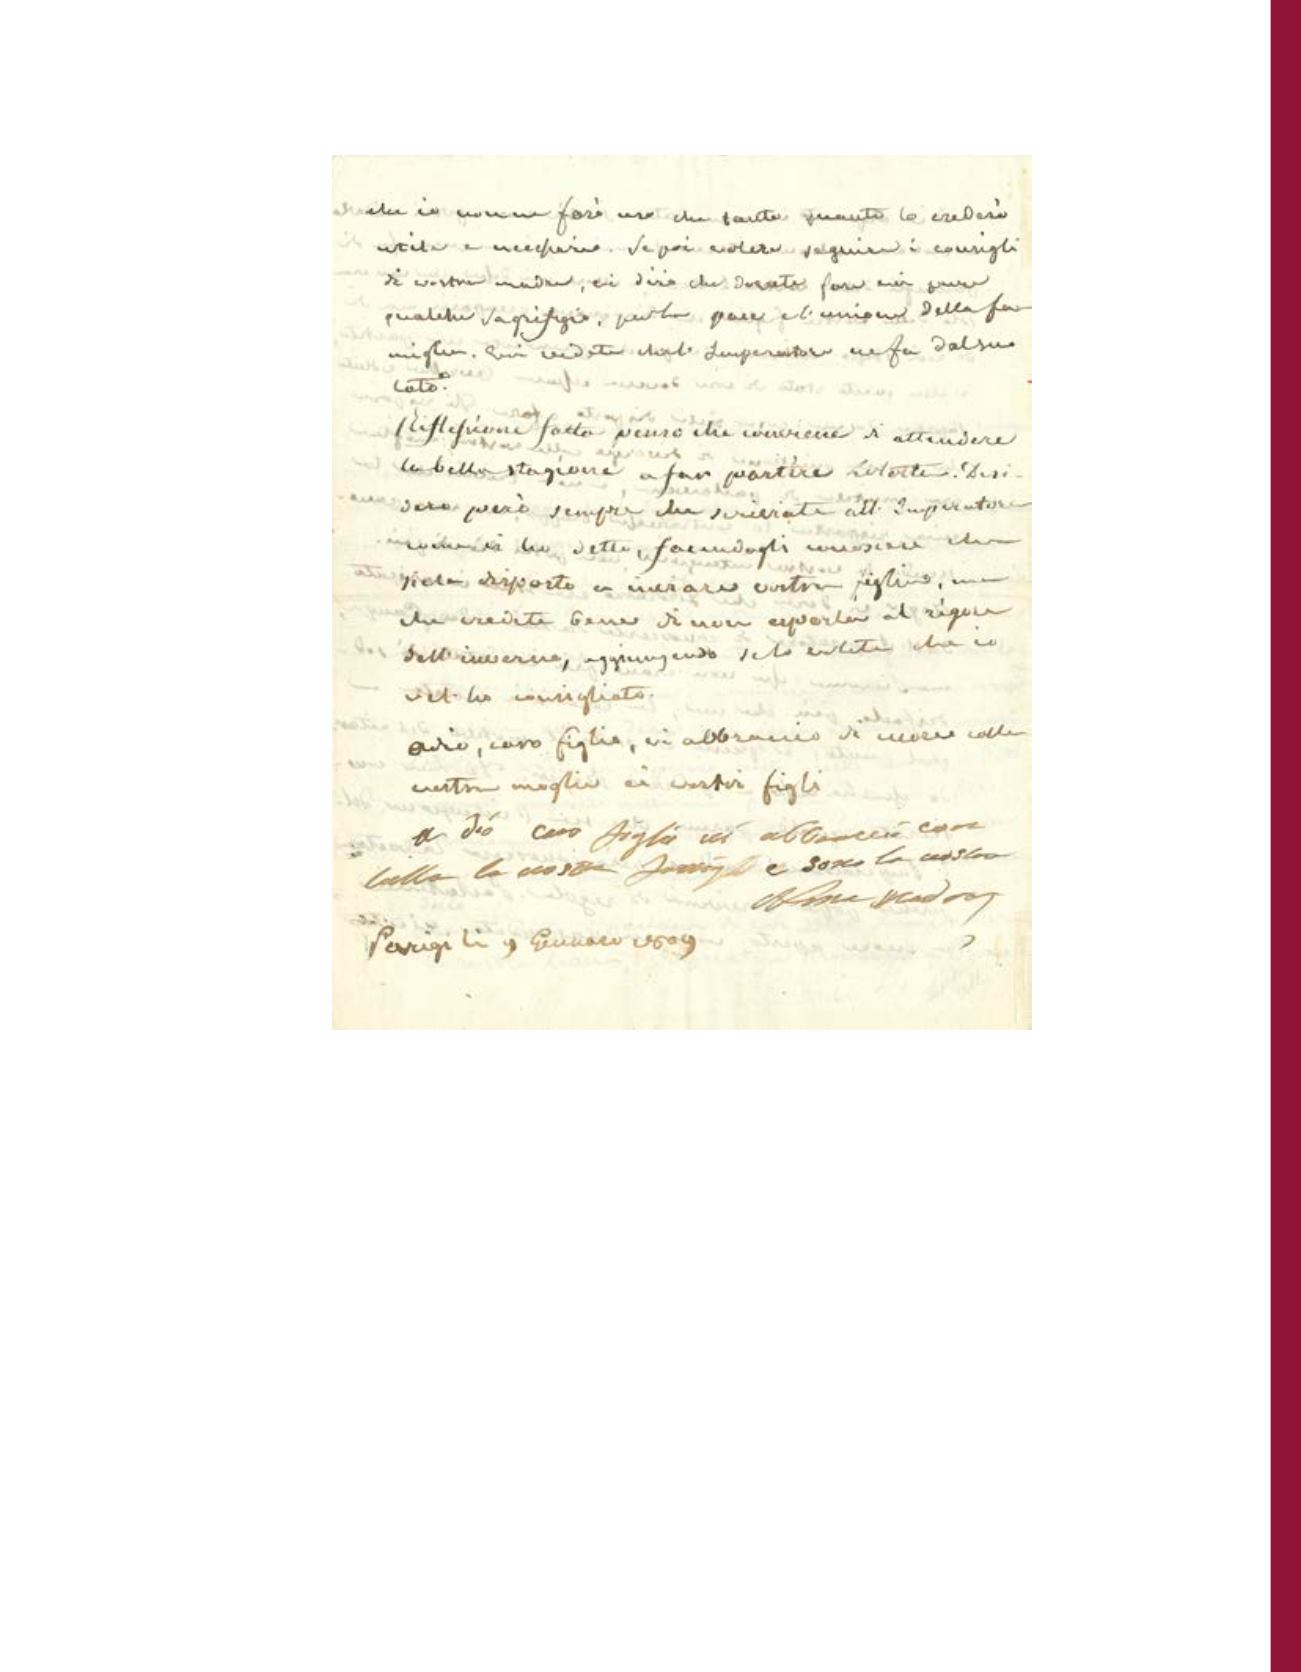 che io non ne farò uso che tanto quanto lo crederò
utile e necessario. Se poi volete seguire i consigli
di vostra madre, vi dirò che dovete fare voi pure
qualche sagrifizio, per la pace e l'unione della fa
miglia. Voi vedete che l'Imperatore ne fa dal suo
lato.
Riflessione fatta penso che conviene di attendere
la bella stagione a far partire Lolotte. Desi-
dero però sempre che scriviate all'Imperatore
come vi ho detto, facendogli conoscere che
siete disposto a inviare vostra figlia, ma
che credete bene di non esporla al rigore
dell'inverno, aggiungendo se lo volete che io
vel' ho consigliato.
Adio, caro figlio, vi abbraccio di cuore colla
vostra moglie ei vostri figli
a dio caro figlio vi abbraccio con
tutta la vostra e sono la vostra
Madre
Parigi li 9 Gennaro 1809